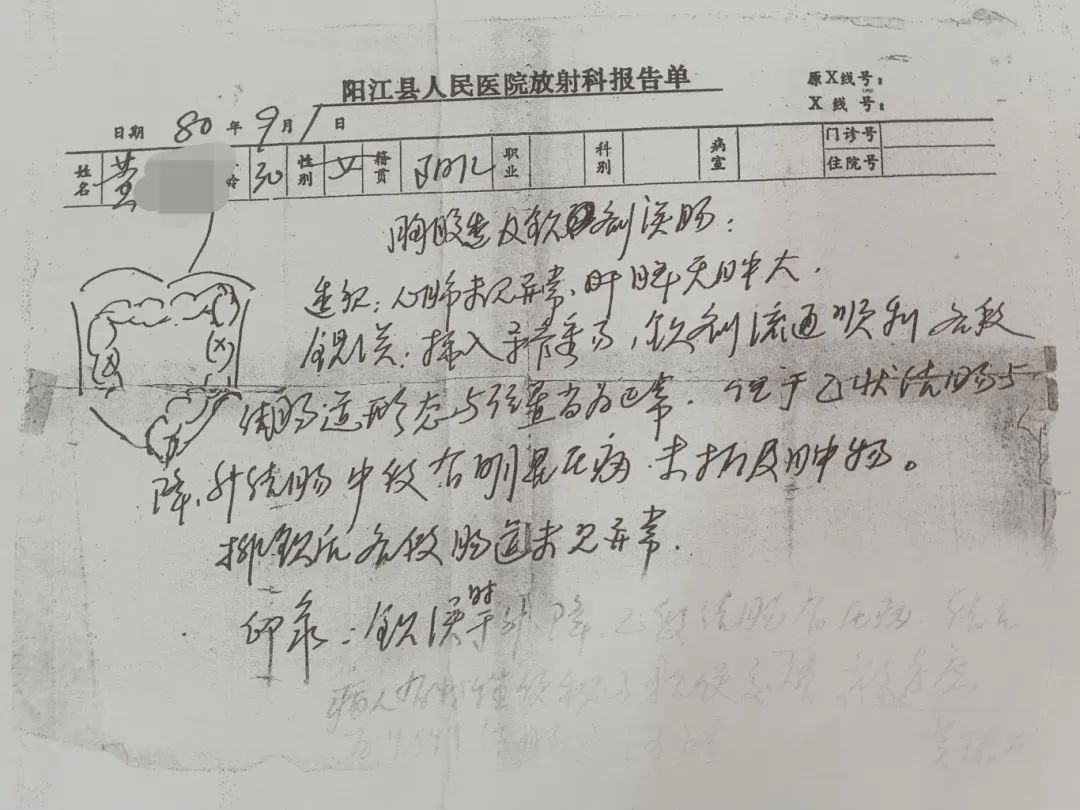 阳江县人民医院放射科报告单
原X线号：
X 线 号：
日期 80 年 9 月 1 日
姓名 黄 龄 30 性别 女 籍贯 阳江 职业 科别 病室 门诊号 住院号
胸腹透及钡剂灌肠：
透视：心肺未见异常、肝脾无肿大．
钡灌：插入 ，钡剂流通顺利 各段
结肠道形态与位置尚为正常．但于乙状结肠与
降、升结肠中段有明显压痛．未扪及肿物。
排钡后各段肠道未见异常．
印象：钡灌时升、降、乙段结肠有压痛 结合
病人有 性便秘与